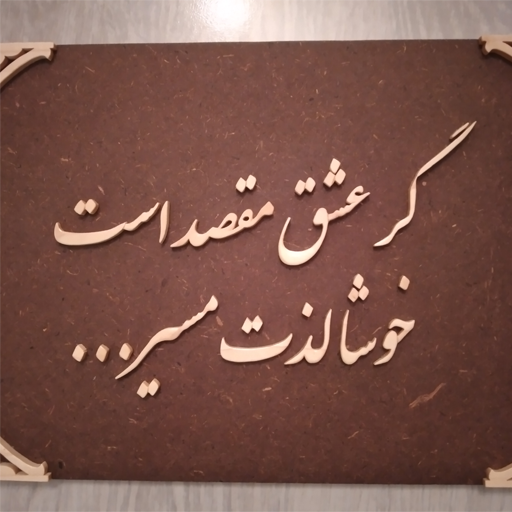 گر عشق مقصد است
خوشا لذت مسیر...